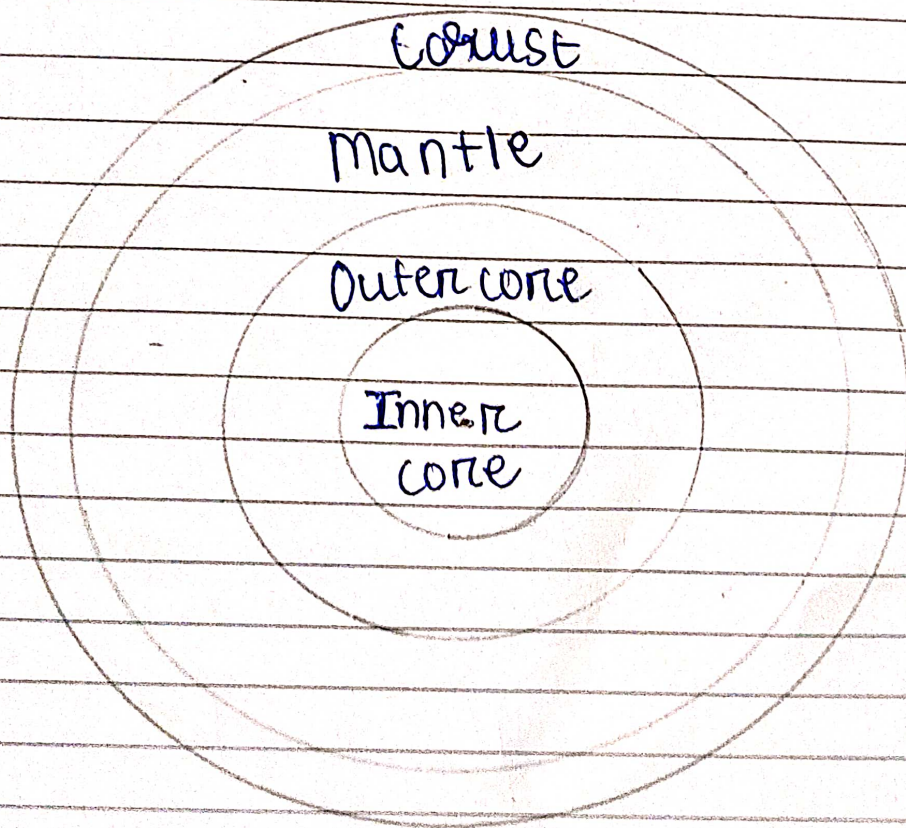 Mantle
Outer core
Inner
core